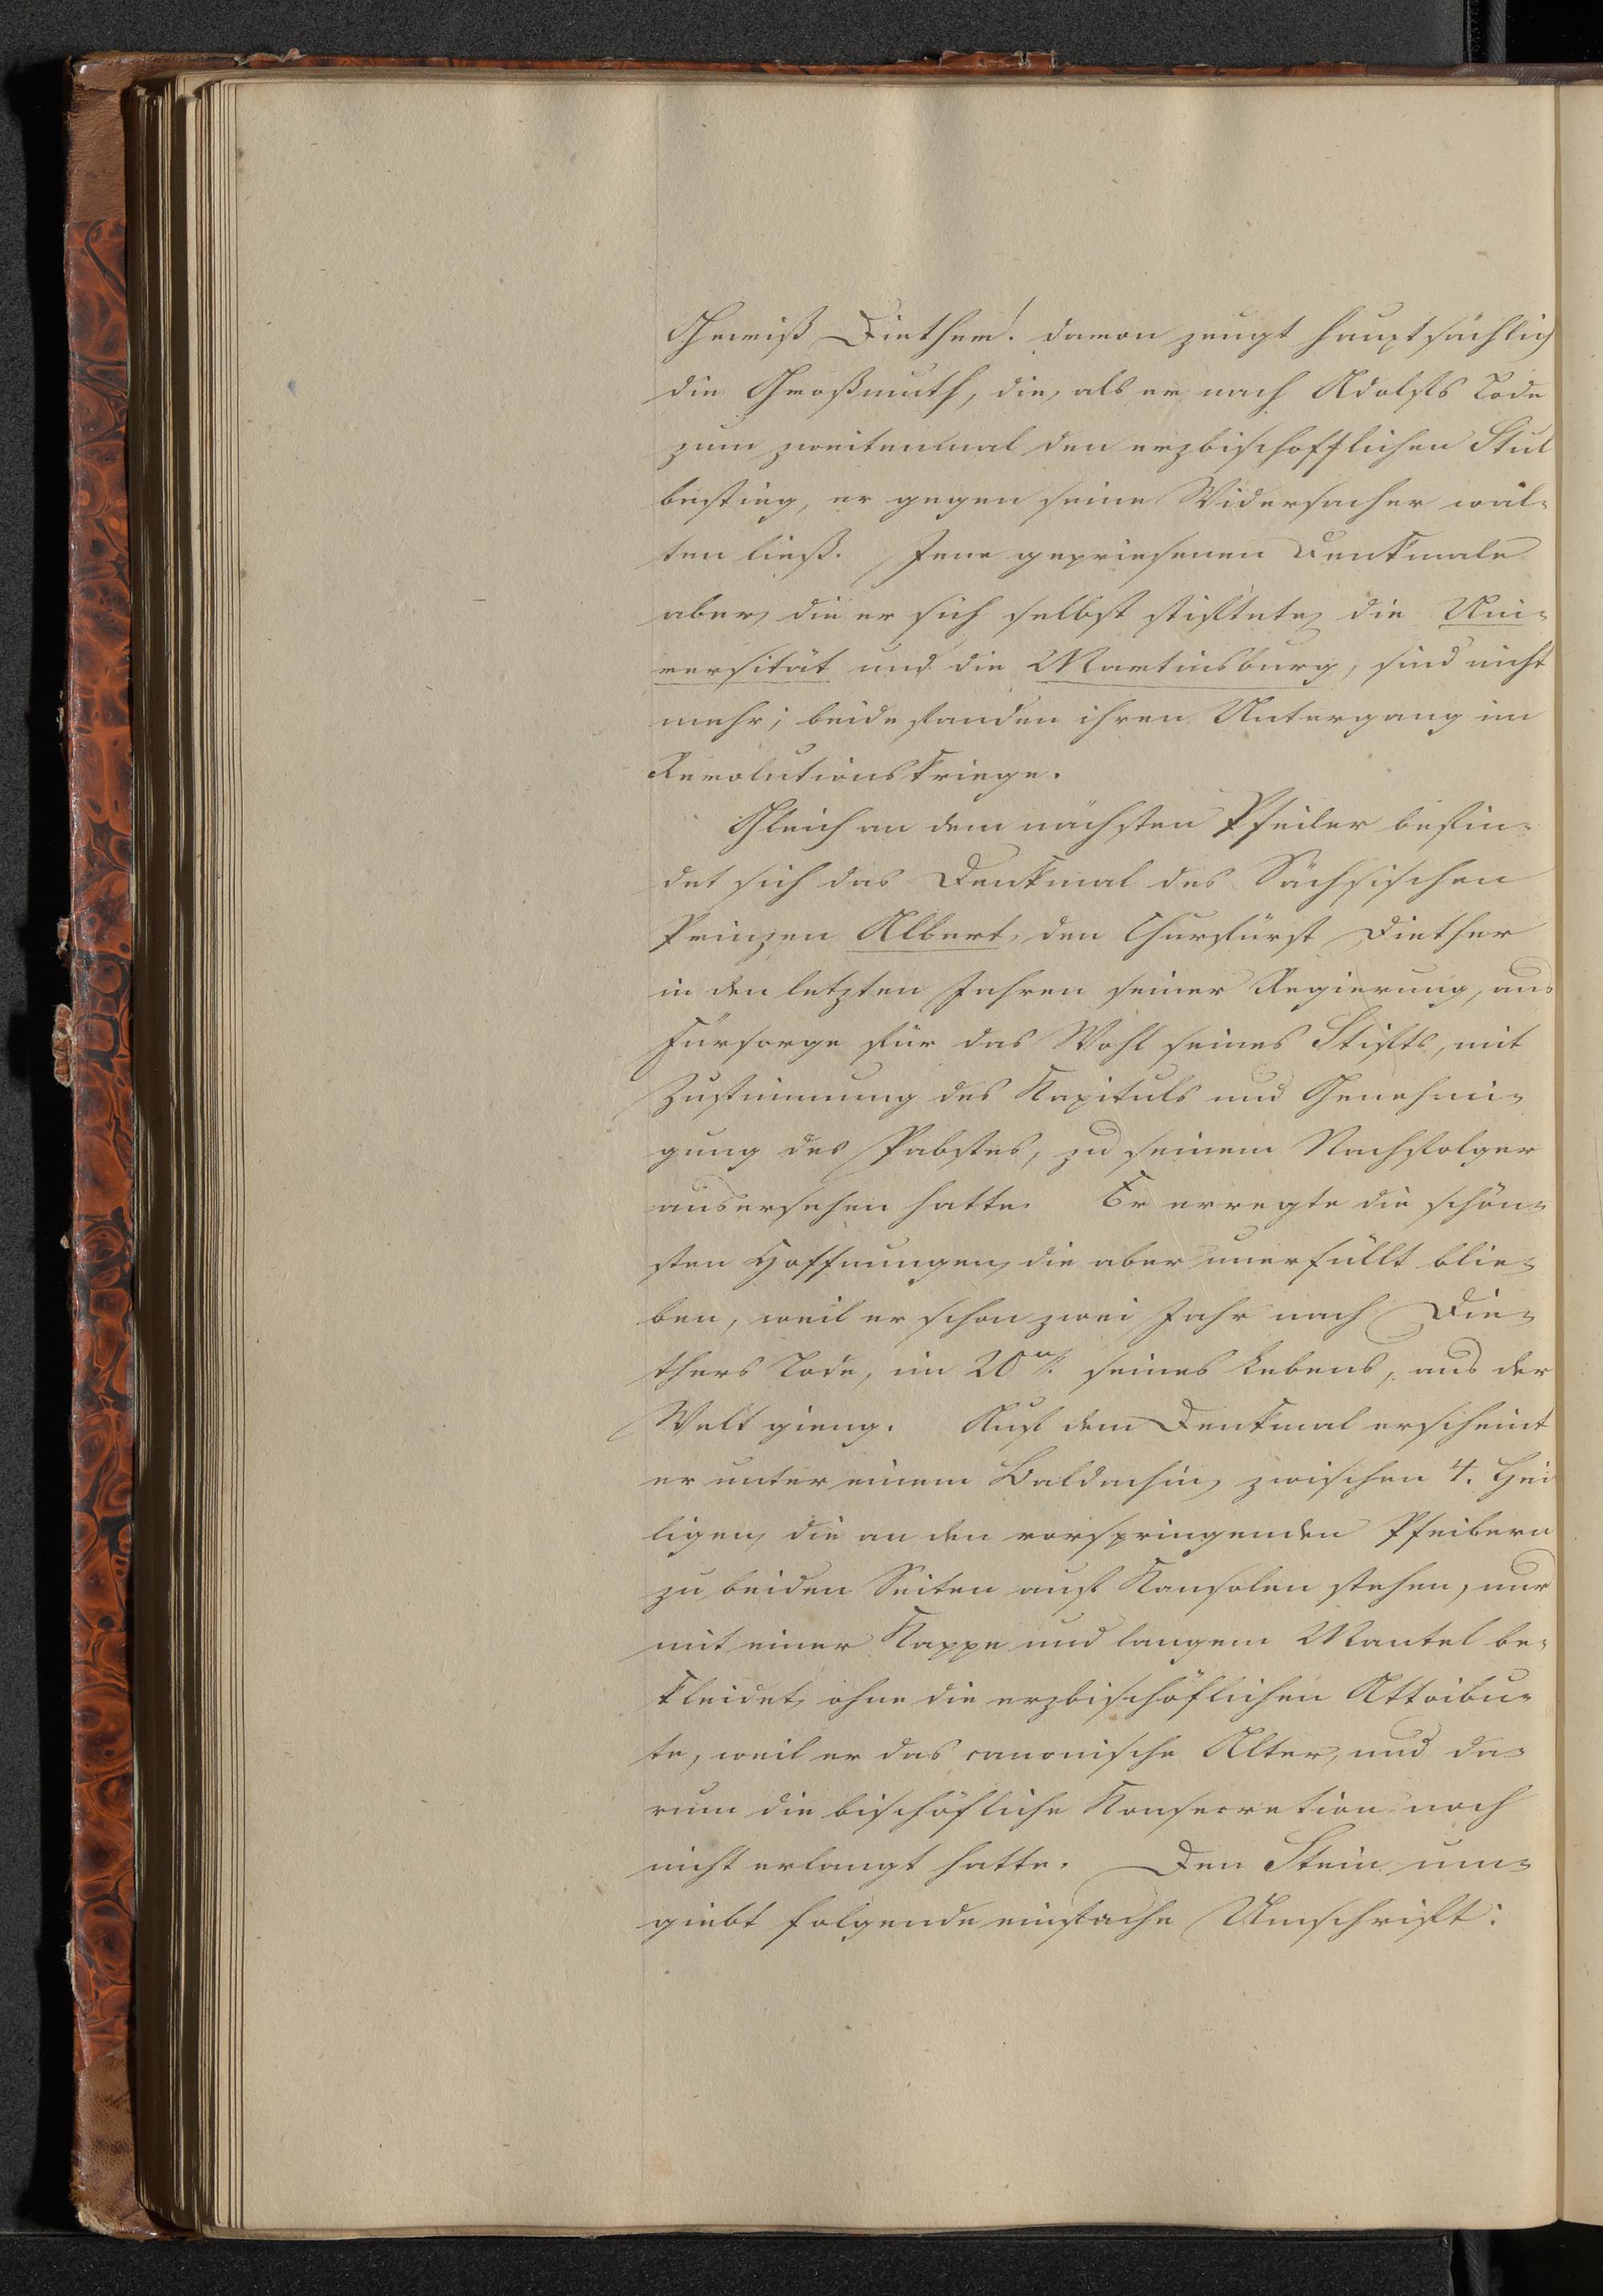 Gewiß Diether! davon zeugt hauptsächlich
die Großmuth, die, als er nach Adolfs Tode
zum zweitenmal den erzbischofflichen Stul
bestieg, er gegen seine Widersacher wal-
ten ließ. Jene gepriesenen Denkmale
aber, die er sich selbst stiftete, die Uni-
versität und die Martinsburg, sind nicht
mehr; beide fanden ihren Untergang im
Revolutionskriege.
Gleich an dem nächsten Pfeiler befin-
det sich das Denkmal des Sächsischen
Prinzen Albert, den Churfürst Diether
in den letzten Jahren seiner Regierung, aus
Fürsorge für das Wohl seines Stifts, mit
Zustimmung des Kapituls und Genehmi-
gung des Pabstes, zu seinem Nachfolger
ausersehen hatte. Er erregte die schön-
sten Hoffnungen, die aber unerfüllt blie-
ben, weil er schon zwei Jahr nach Die-
thers Tode, im 20n/. seines Lebens, aus der
Welt gieng. Auf dem Denkmal erscheint
er unter einem Baldachin, zwischen 4. Hei
ligen, die an den vorspringenden Pfeilern
zu beiden Seiten auf Konsolen stehen, nur
mit einer Kappe und langem Mantel be-
kleidet, ohne die erzbischöflichen Attribu-
te, weil er das canonische Alter, und da-
rum die bischöfliche Konsecration noch
nicht erlangt hatte. Den Stein um-
giebt folgende einfache Umschrift: